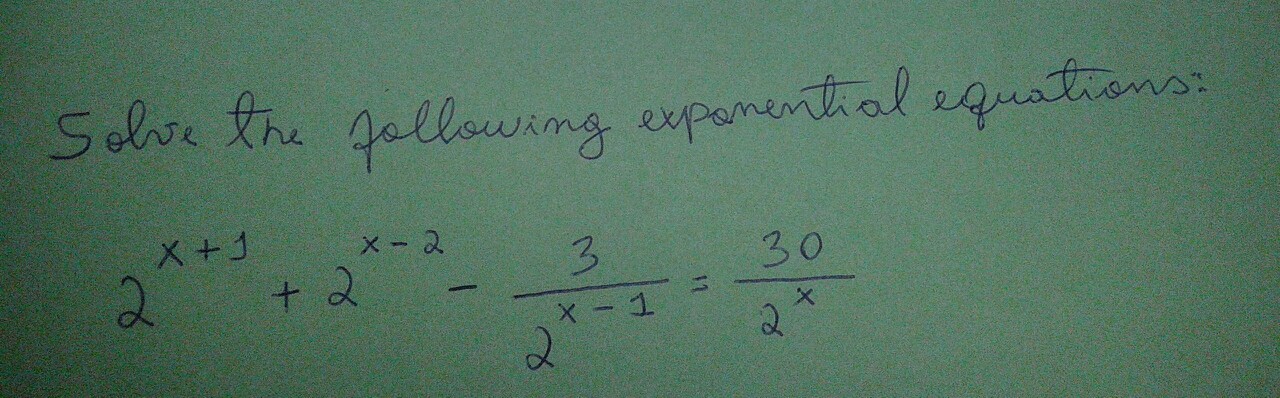 Solve the following exponential equations:
2^(x+1) + 2^(x-2) - 3/2^(x-1) = 30/2^x